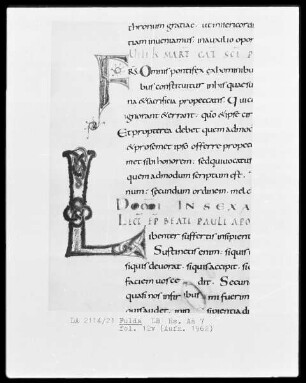 thronum gratiae · ut misericordi
tiam inueniamus · in auxilio opor
F RS Omnis pontifex ex hominibu
bus constituitur in his quae su
na & sacrificia pro peccatis · Qui c
ignorant & errant · quō & ipse cir
Et propterea debet quem admoc
& pro semet ipso offerre pro pecc
met sibi honorem · sed qui uocatus
quem admodum scriptum est ·
num · secundum ordinem · mel · c
DOM IN SEXA
LECT EP BEATI PAULI APO
L ibenter suffertis insipient
Sustinetis enim · siquis ·
siquis deuorat · siquis accipit · si
faciem uos ce dit · Secun
quasi nos infir ibus · mi fuerim
quis audet · insipientia di
DA 2114/21 Fulda LB Hs. Aa 7
fol. 12v (Aufn. 1968)